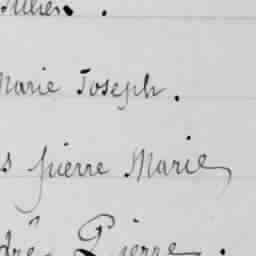 Marie Joseph.
s pierre Marie
dré Pierre.